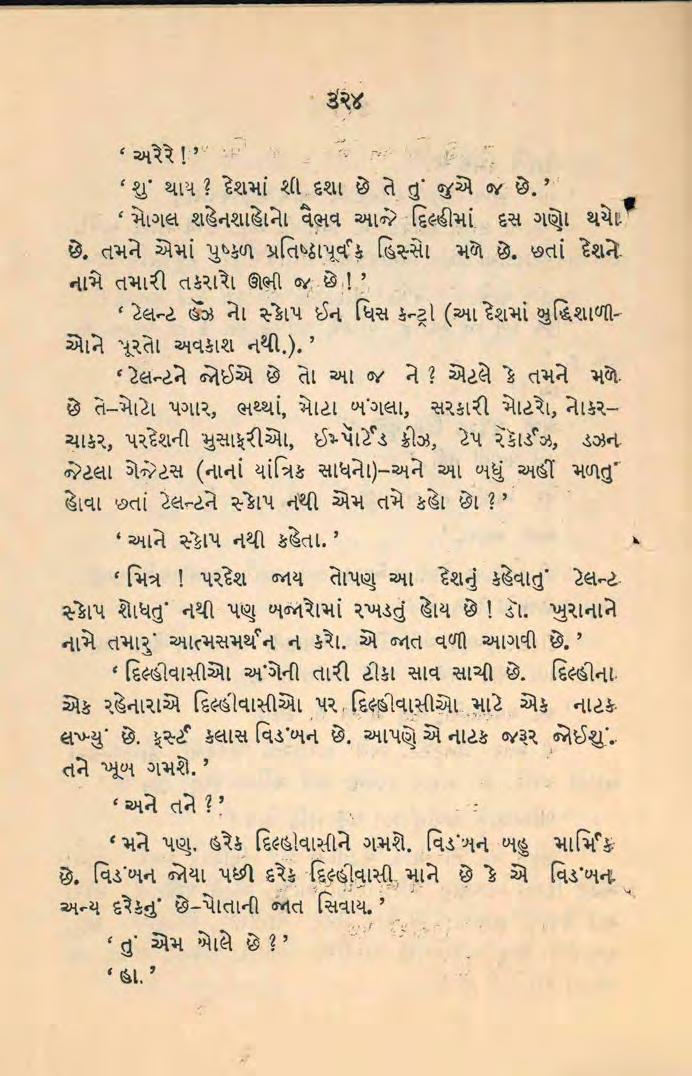 ૩૨૪
‘ અરેરે ! ’
‘ શું થાય ? દેશમાં શી દશા છે તે તું જુએ જ છે. ’
‘ મોગલ શહેનશાહોનો વૈભવ આજે દિલ્હીમાં દસ ગણો થયો
છે. તમને એમાં પુષ્કળ પ્રતિષ્ઠાપૂર્વક હિસ્સો મળે છે. છતાં દેશને
નામે તમારી તકરારો ઊભી જ છે ! ’
‘ ટેલન્ટ હૅઝ નો સ્કોપ ઈન ધિસ કન્ટ્રી (આ દેશમાં બુદ્ધિશાળી-
ઓને પૂરતો અવકાશ નથી.). ’
‘ ટેલન્ટને જોઈએ છે તો આ જ ને ? એટલે કે તમને મળે
છે તે–મોટો પગાર, ભથ્થાં, મોટા બંગલા, સરકારી મોટરો, નોકર–
ચાકર, પરદેશની મુસાફરીઓ, ઈમ્પૉર્ટેડ ફ્રીઝ, ટેપ રૅકૉર્ડઝ, ડઝન
જેટલા ગેજેટસ (નાનાં યાંત્રિક સાધનો)–અને આ બધું અહીં મળતું
હોવા છતાં ટેલન્ટને સ્કોપ નથી એમ તમે કહો છો ? ’
‘ આને સ્કોપ નથી કહેતા. ’
‘ મિત્ર ! પરદેશ જાય તોપણ આ દેશનું કહેવાતું ટેલન્ટ
સ્કોપ શોધતું નથી પણ બજારોમાં રખડતું હોય છે ! ડૉ. ખુરાનાને
નામે તમારું આત્મસમર્થન ન કરો. એ જાત વળી આગવી છે. ’
‘ દિલ્હીવાસીઓ અંગેની તારી ટીકા સાવ સાચી છે. દિલ્હીના
એક રહેનારાએ દિલ્હીવાસીઓ પર દિલ્હીવાસીઓ માટે એક નાટક
લખ્યું છે. ફર્સ્ટ કલાસ વિડંબન છે. આપણે એ નાટક જરૂર જોઈશું.
તને ખૂબ ગમશે. ’
‘ અને તને ? ’
‘ મને પણ. હરેક દિલ્હીવાસીને ગમશે. વિડંબન બહુ માર્મિક
છે. વિડંબન જોયા પછી દરેક દિલ્હીવાસી માને છે કે એ વિડંબન
અન્ય દરેકનું છે–પોતાની જાત સિવાય. ’
‘ તું એમ બોલે છે ? ’
‘ હા. ’